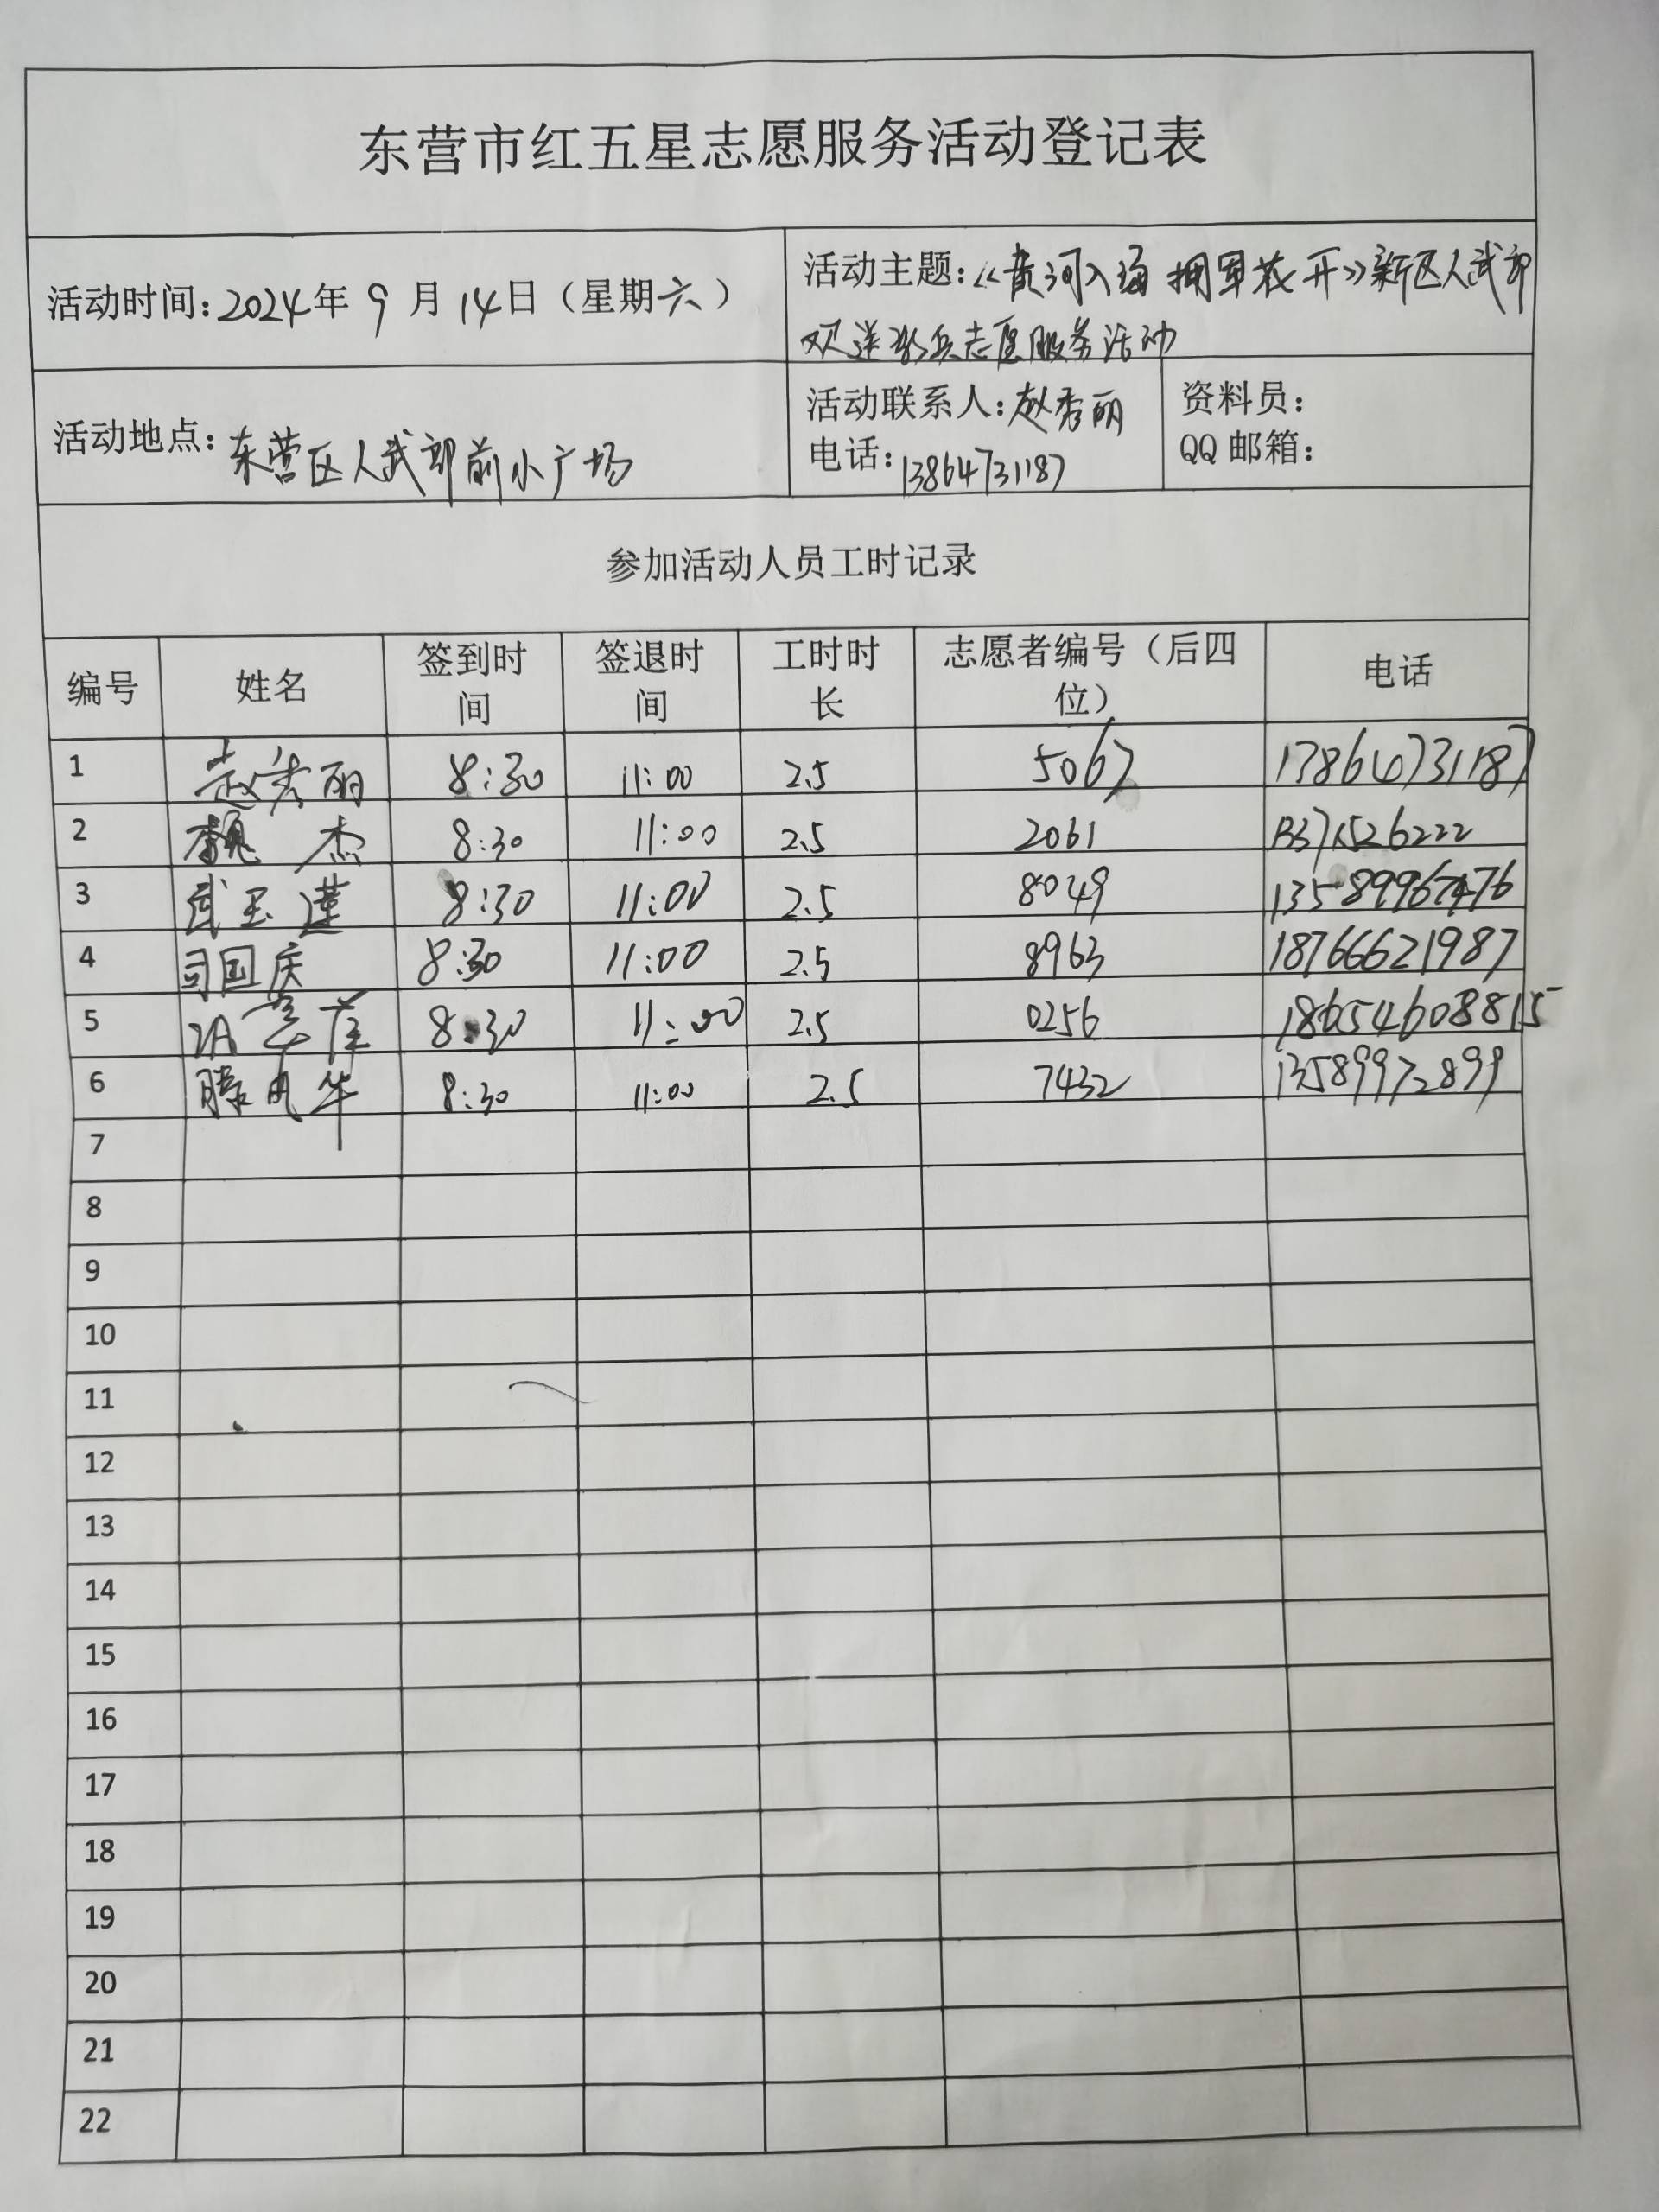 东营市红五星志愿服务活动登记表
活动时间:2024年9月14日（星期六）
活动主题:《黄河入海 拥军花开》新区人武部
欢送新兵志愿服务活动
活动地点:东营区人武部前小广场
活动联系人:赵秀丽
电话:13864731187
资料员:
QQ邮箱:
参加活动人员工时记录
编号 姓名 签到时间 签退时间 工时时长 志愿者编号（后四位） 电话
1 赵秀丽 8:30 11:00 2.5 5067 13864731187
2 杰 8:30 11:00 2.5 2061
3 武玉莲 8:30 11:00 2.5 8049 13589967476
4 司国庆 8:30 11:00 2.5 8963 18766621987
5 8:30 11:00 2.5 0256
6 滕凤华 8:30 11:00 2.5 7432 13589972899
7
8
9
10
11
12
13
14
15
16
17
18
19
20
21
22